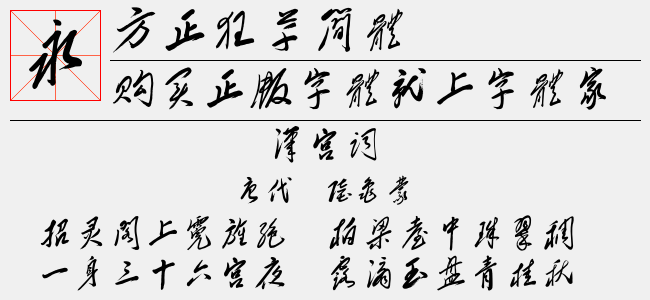 永
方正狂草簡體
购买正版字體就上字體家
漢宫词
唐代 陆龟蒙
招灵阁上霓旌绝 柏梁臺中珠翠稠
一身三十六宫夜 露滴玉盘青桂秋